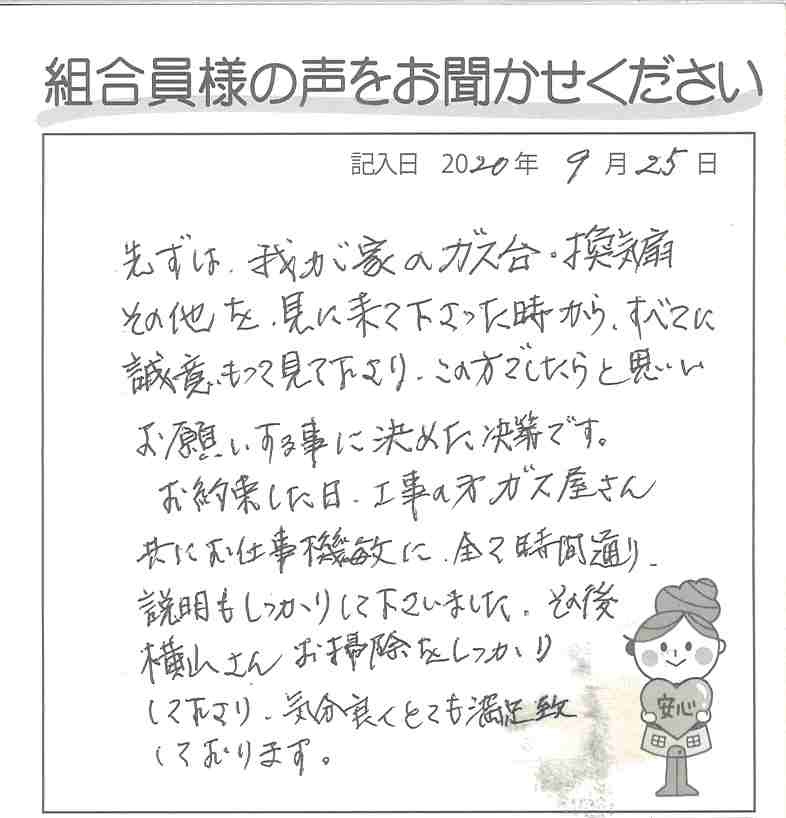 組合員様の声をお聞かせください
記入日 2020年 9月25日
先ずは、我が家のガス台・換気扇
その他を、見に来て下さった時から、すべてに
誠意もって見て下さり、この方でしたらと思い
お願いする事に決めた次第です。
お約束した日、工事の方ガス屋さん
共にお仕事機敏に、全て時間通り、
説明もしっかりして下さいました。その後
横山さんお掃除をしっかり
して下さり、気分良くとても満足致
しております。
安心